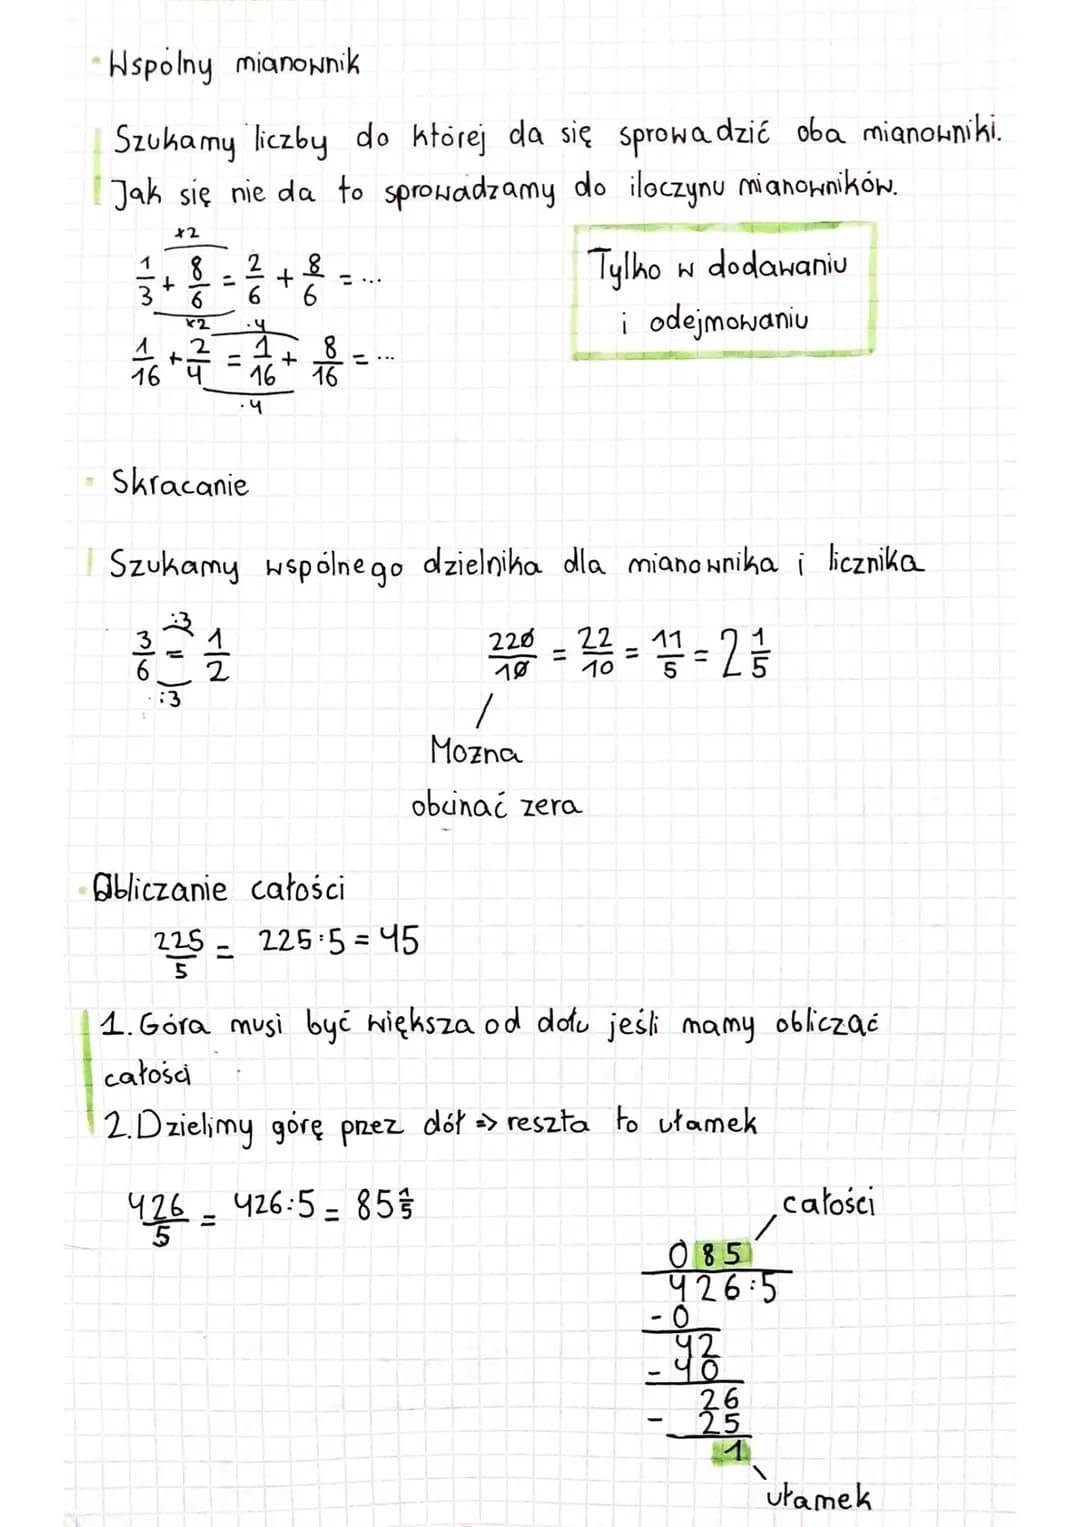 Wspólny mianownik
Szukamy liczby do której da się sprowadzić oba mianowniki.
Jak się nie da to sprowadzamy do iloczynu mianowników.
×2
1/3 + 8/6 = 2/6 + 8/6 = ...
×2
Tylko w dodawaniu
i odejmowaniu
·4
1/16 + 2/4 = 1/16 + 8/16 = ...
·4
Skracanie
Szukamy wspólnego dzielnika dla mianownika i licznika
:3
3/6 = 1/2
:3
220/10 = 22/10 = 11/5 = 2 1/5
Mozna
obcinać zera
Obliczanie całości
225/5 = 225:5 = 45
1. Góra musi być większa od dołu jeśli mamy obliczać
całości
2. Dzielimy górę przez dół => reszta to ułamek
426/5 = 426:5 = 85 1/5
całości
085
426:5
-0
42
-40
26
- 25
1
ułamek